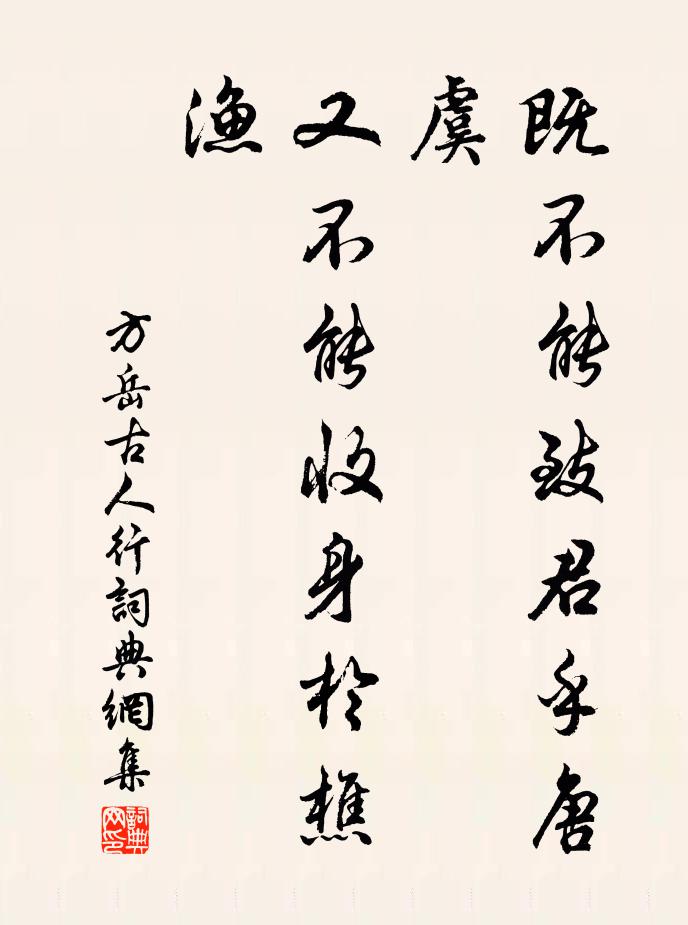 既不能致君乎唐
虞
又不能收身於樵
渔
方岳古人行詞典網集
詞典网印